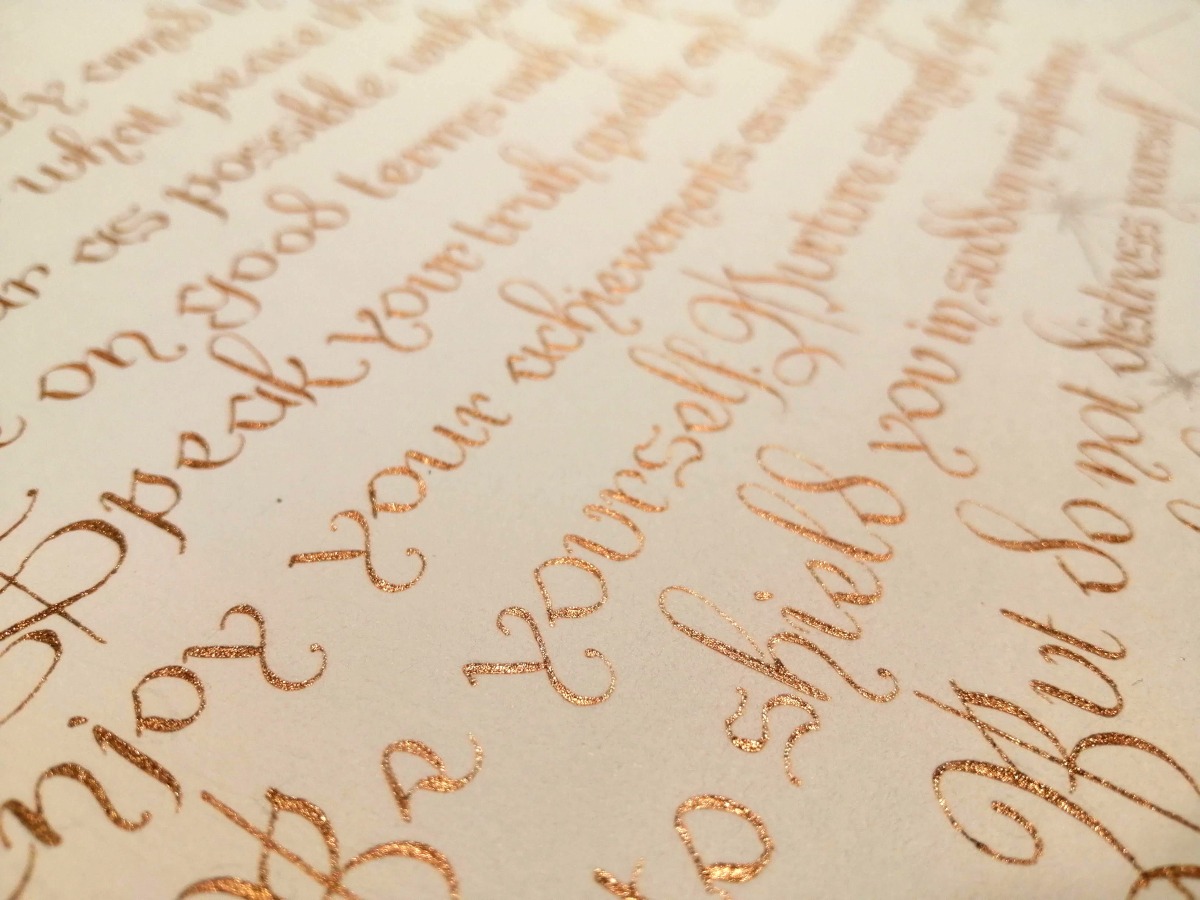 what peace
as possible
on good terms with
Speak your truth quietly
njoy your achievements as well
Be yourself. Nurture strength of
to shield you in sudden misfortune
But do not distress yourself